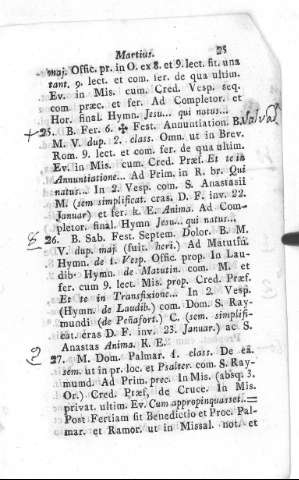 Martius. 25
maj. Offic. pr. in O. ex 8. et 9. lect. fit una
tant. 9. lect. et com. fer. de qua ultim.
Ev. in Mis. cum Cred. Vesp. seq.
com. præc. et fer. Ad Completor. et
Hor. final. Hymn. Jesu... qui natus... 2.
+ 25. B. Fer. 6. ✠ Fest. Annuntiation. B.
M. V. dup. 2. class. Omn. ut in Brev.
Rom. 9. lect. et com. fer. de qua ultim.
Ev. in Mis. cum Cred. Præf. Et te in
Annuntiatione... Ad Prim. in R. br. Qui
natus... In 2. Vesp. com. S. Anastasii
M. (sem simplificat. cras. D. F. inv. 22.
Januar) et fer. k. E. Anima. Ad Com-
pletor. final. Hymn Jesu... qui natus...
8 26. B. Sab. Fest. Septem. Dolor. B. M.
V. dup. maj. (fuit. heri.) Ad Matutin.
Hymn. de 1. Vesp. Offic. prop. In Lau-
dib. Hymn. de Matutin. com. M. et
fer. cum 9. lect. Mis. prop. Cred. Præf.
Et te in Transfixione... In 2. Vesp.
(Hymn. de Laudib.) com. Dom. S. Ray-
mundi (de Peñafort.) C. (sem. simplifi-
cat. cras D. F. inv. 23. Januar.) ac S.
Anastas Anima. K. E.
2 27. M. Dom. Palmar. 1. class. De eâ.
sem. ut in pr. loc. et Psalter. com. S. Ray-
mund. Ad Prim. prec. In Mis. (absq. 3.
Or.) Cred. Præf. de Cruce. In Mis.
privat. ultim. Ev. Cum appropinquasset.
Post Fertiam fit Benedictio et Proc. Pal-
mar. et Ramor. ut in Missal. not. et